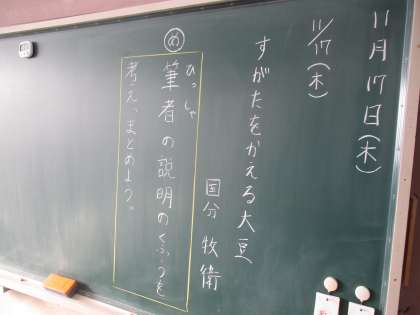 11月17日(木)
11/17(木)
すがたをかえる大豆
国分 牧衛
め
ひっしゃ
筆者の説明のくふうを
考え、まとめよう。